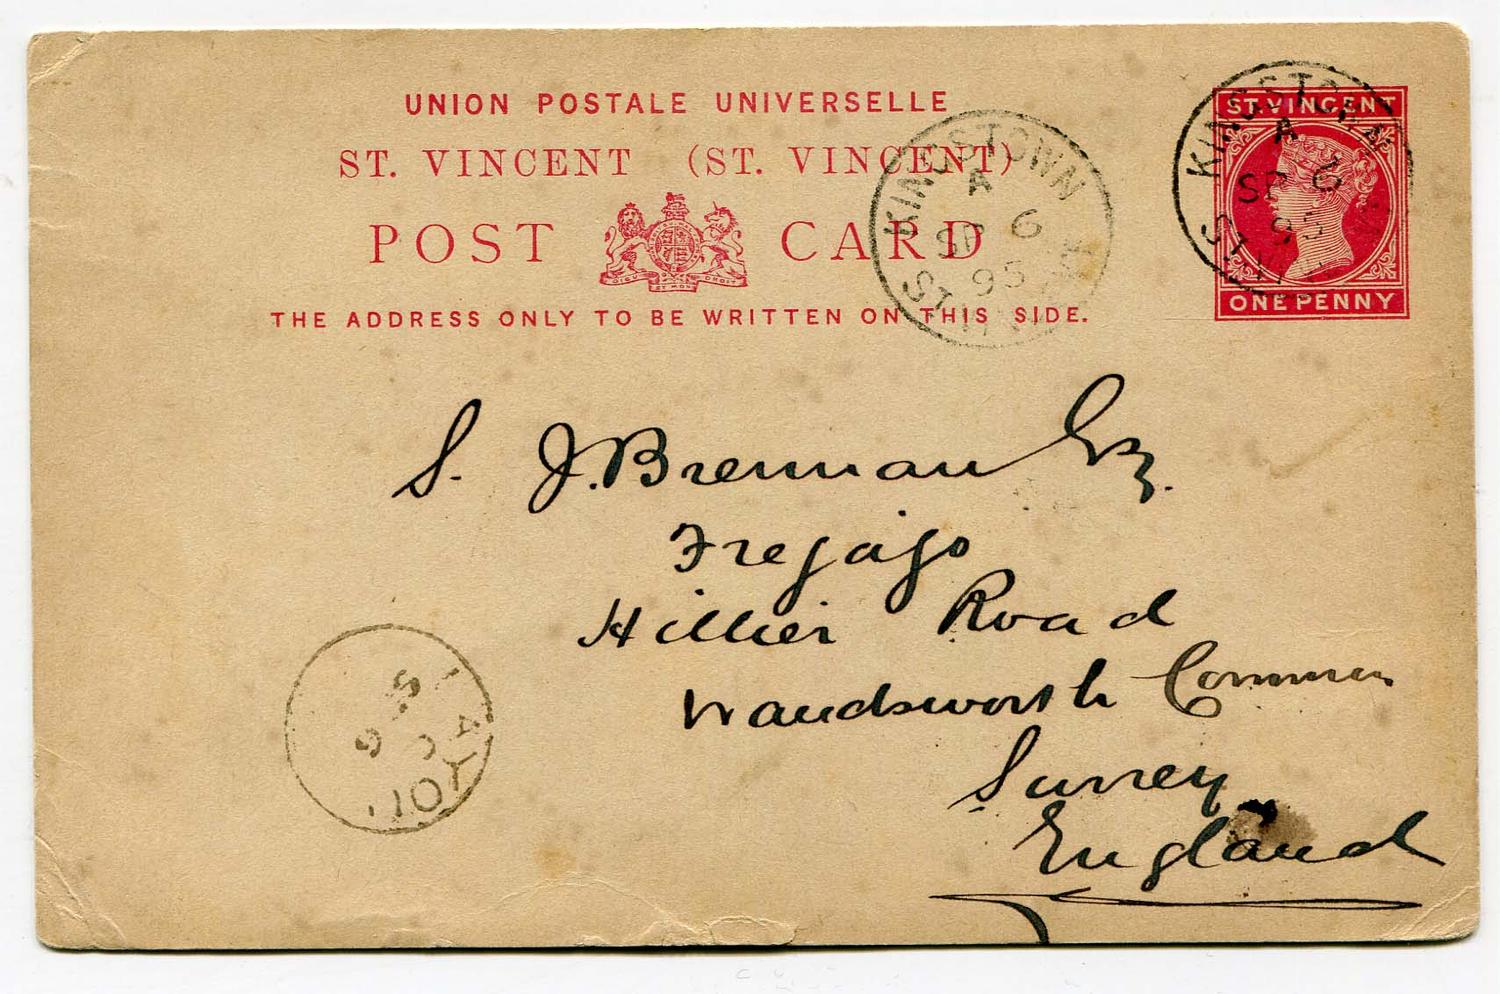 UNION POSTALE UNIVERSELLE
ST. VINCENT (ST. VINCENT)
POST CARD
DIEU ET MON DROIT
THE ADDRESS ONLY TO BE WRITTEN ON THIS SIDE.
KINGSTOWN
A
SP 6
95
ST. VINCENT
ST. VINCENT
ONE PENNY
KINGSTOWN
A
SP 6
95
ST. VINCENT
S. J. Brennan Esq.
Hillier Road
Wandsworth Common
Surrey
England
LAYOU